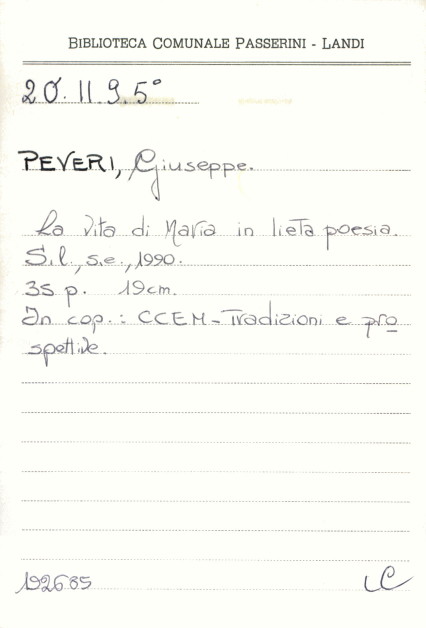 BIBLIOTECA COMUNALE PASSERINI - LANDI
20. II. 9. 5°
PEVERI, Giuseppe.
La vita di Maria in lieta poesia.
S.l., s.e., 1990.
35 p. 19 cm.
In cop.: CCEM - Tradizioni e pro
spettive.
192685